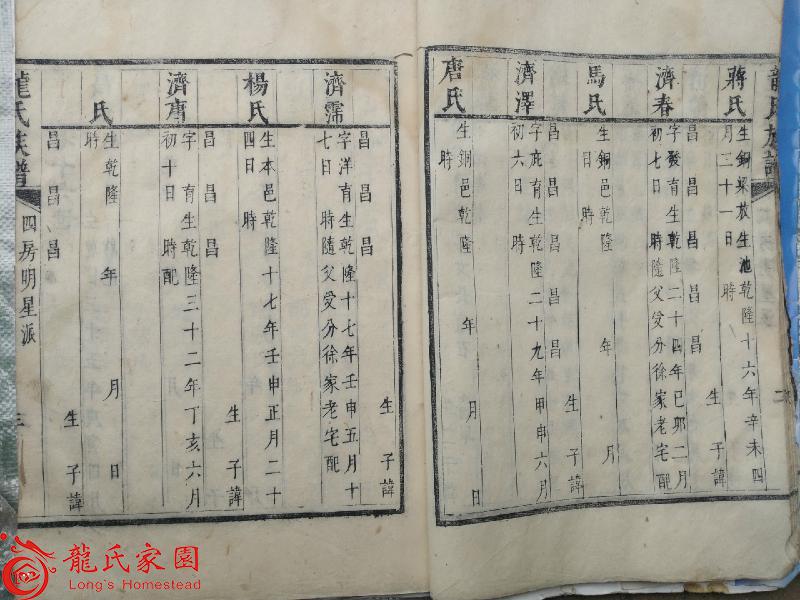 龍氏族譜
蔣氏
生銅梁放生池乾隆十六年辛未四
月二十一日 時
昌 昌 昌 生 子諱
濟春
字發育生乾隆二十四年己卯二月
初七日 時隨父受分徐家老宅配
馬氏
生銅邑乾隆 年 月
日 時
昌 昌 昌 生 子諱
濟澤
字庇育生乾隆二十九年甲申六月
初六日 時
唐氏
生銅邑乾隆 年 月 日
時
昌 昌 昌 生 子諱
濟霈
字洋育生乾隆十七年壬申五月十
七日 時隨父受分徐家老宅配
楊氏
生本邑乾隆十七年壬申正月二十
四日 時
昌 昌 昌 生 子諱
濟唐
字 育生乾隆三十二年丁亥六月
初十日 時配
氏
生乾隆 年 月 日
時
昌 昌 昌 生 子諱
龍氏族譜
四房明星派
三
龍氏家園
Long's Homestead